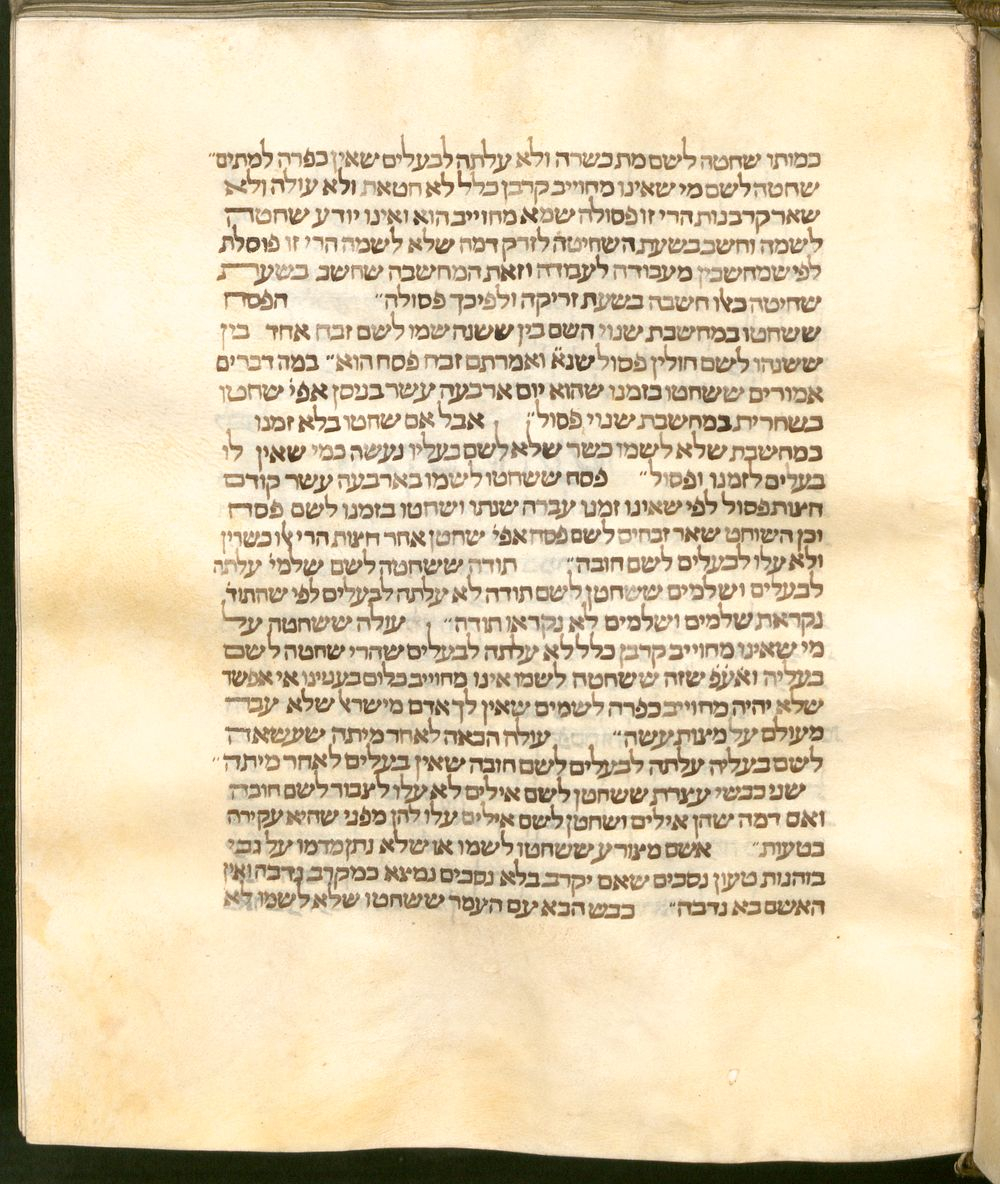 כמותו שחטה לשם מת כשרה ולא עלתה לבעלים שאין כפרה למתים״
שחטה לשם מי שאינו מחוייב קרבן כלל לא חטאת ולא עולה ולא
שאר קרבנות הרי זו פסולה שמא מחוייב הוא ואינו יודע שחטה
לשמה וחשב בשעת השחיטה לזרק דמה שלא לשמה הרי זו פוסלת
לפי שמחשבין מעבודה לעבודה וזאת המחשבה שחשב בשעת
שחיטה כאלו חשבה בשעת זריקה ולפיכך פסולה״ הפסח
ששחטו במחשבת שנוי השם בין ששנה שמו לשם זבח אחד בין
ששנהו לשם חולין פסול שנא׳ ואמרתם זבח פסח הוא״ במה דברים
אמורים ששחטו בזמנו שהוא יום ארבעה עשר בניסן אפי׳ שחטו
בשחרית במחשבת שנוי פסול״ אבל אם שחטו בלא זמנו
במחשבת שלא לשמו כשר שלא לשם בעליו נעשה כמי שאין לו
בעלים לזמנו ופסול״ פסח ששחטו לשמו בארבעה עשר קודם
חצות פסול לפי שאינו זמנו עברה שנתו ושחטו בזמנו לשם פסח
וכן השוחט שאר זבחים לשם פסח אפי׳ שחטן אחר חצות הרי אלו כשרין
ולא עלו לבעלים לשם חובה״ תודה ששחטה לשם שלמי׳ עלתה
לבעלים ושלמים ששחטן לשם תודה לא עלתה לבעלים לפי שהתוד׳
נקראת שלמים ושלמים לא נקראו תודה״ עולה ששחטה על
מי שאינו מחוייב קרבן כלל לא עלתה לבעלים שהרי שחטה לשם
בעליה ואע״פ שזה ששחטה לשמו אינו מחוייב כלום בענינו אי אפשר
שלא יהיה מחוייב כפרה לשמים שאין לך אדם מישראל שלא עבר
מעולם על מצות עשה״ עולה הבאה לאחר מיתה שעשאה
לשם בעליה עלתה לבעלים לשם חובה שאין בעלים לאחר מיתה״
שני כבשי עצרת ששחטן לשם אילים לא עלו לצבור לשם חובה
ואם דמה שהן אילים ושחטן לשם אילים עלו להן מפני שהיא עקירה
בטעות״ אשם מצורע ששחטו לשמו או שלא נתן מדמו על גבי
בוהנות טעון נסכים שאם יקרב בלא נסכים נמצא כמקרב נדבה ואין
האשם בא נדבה״ כבש הבא עם העמר ששחטו שלא לשמו לא